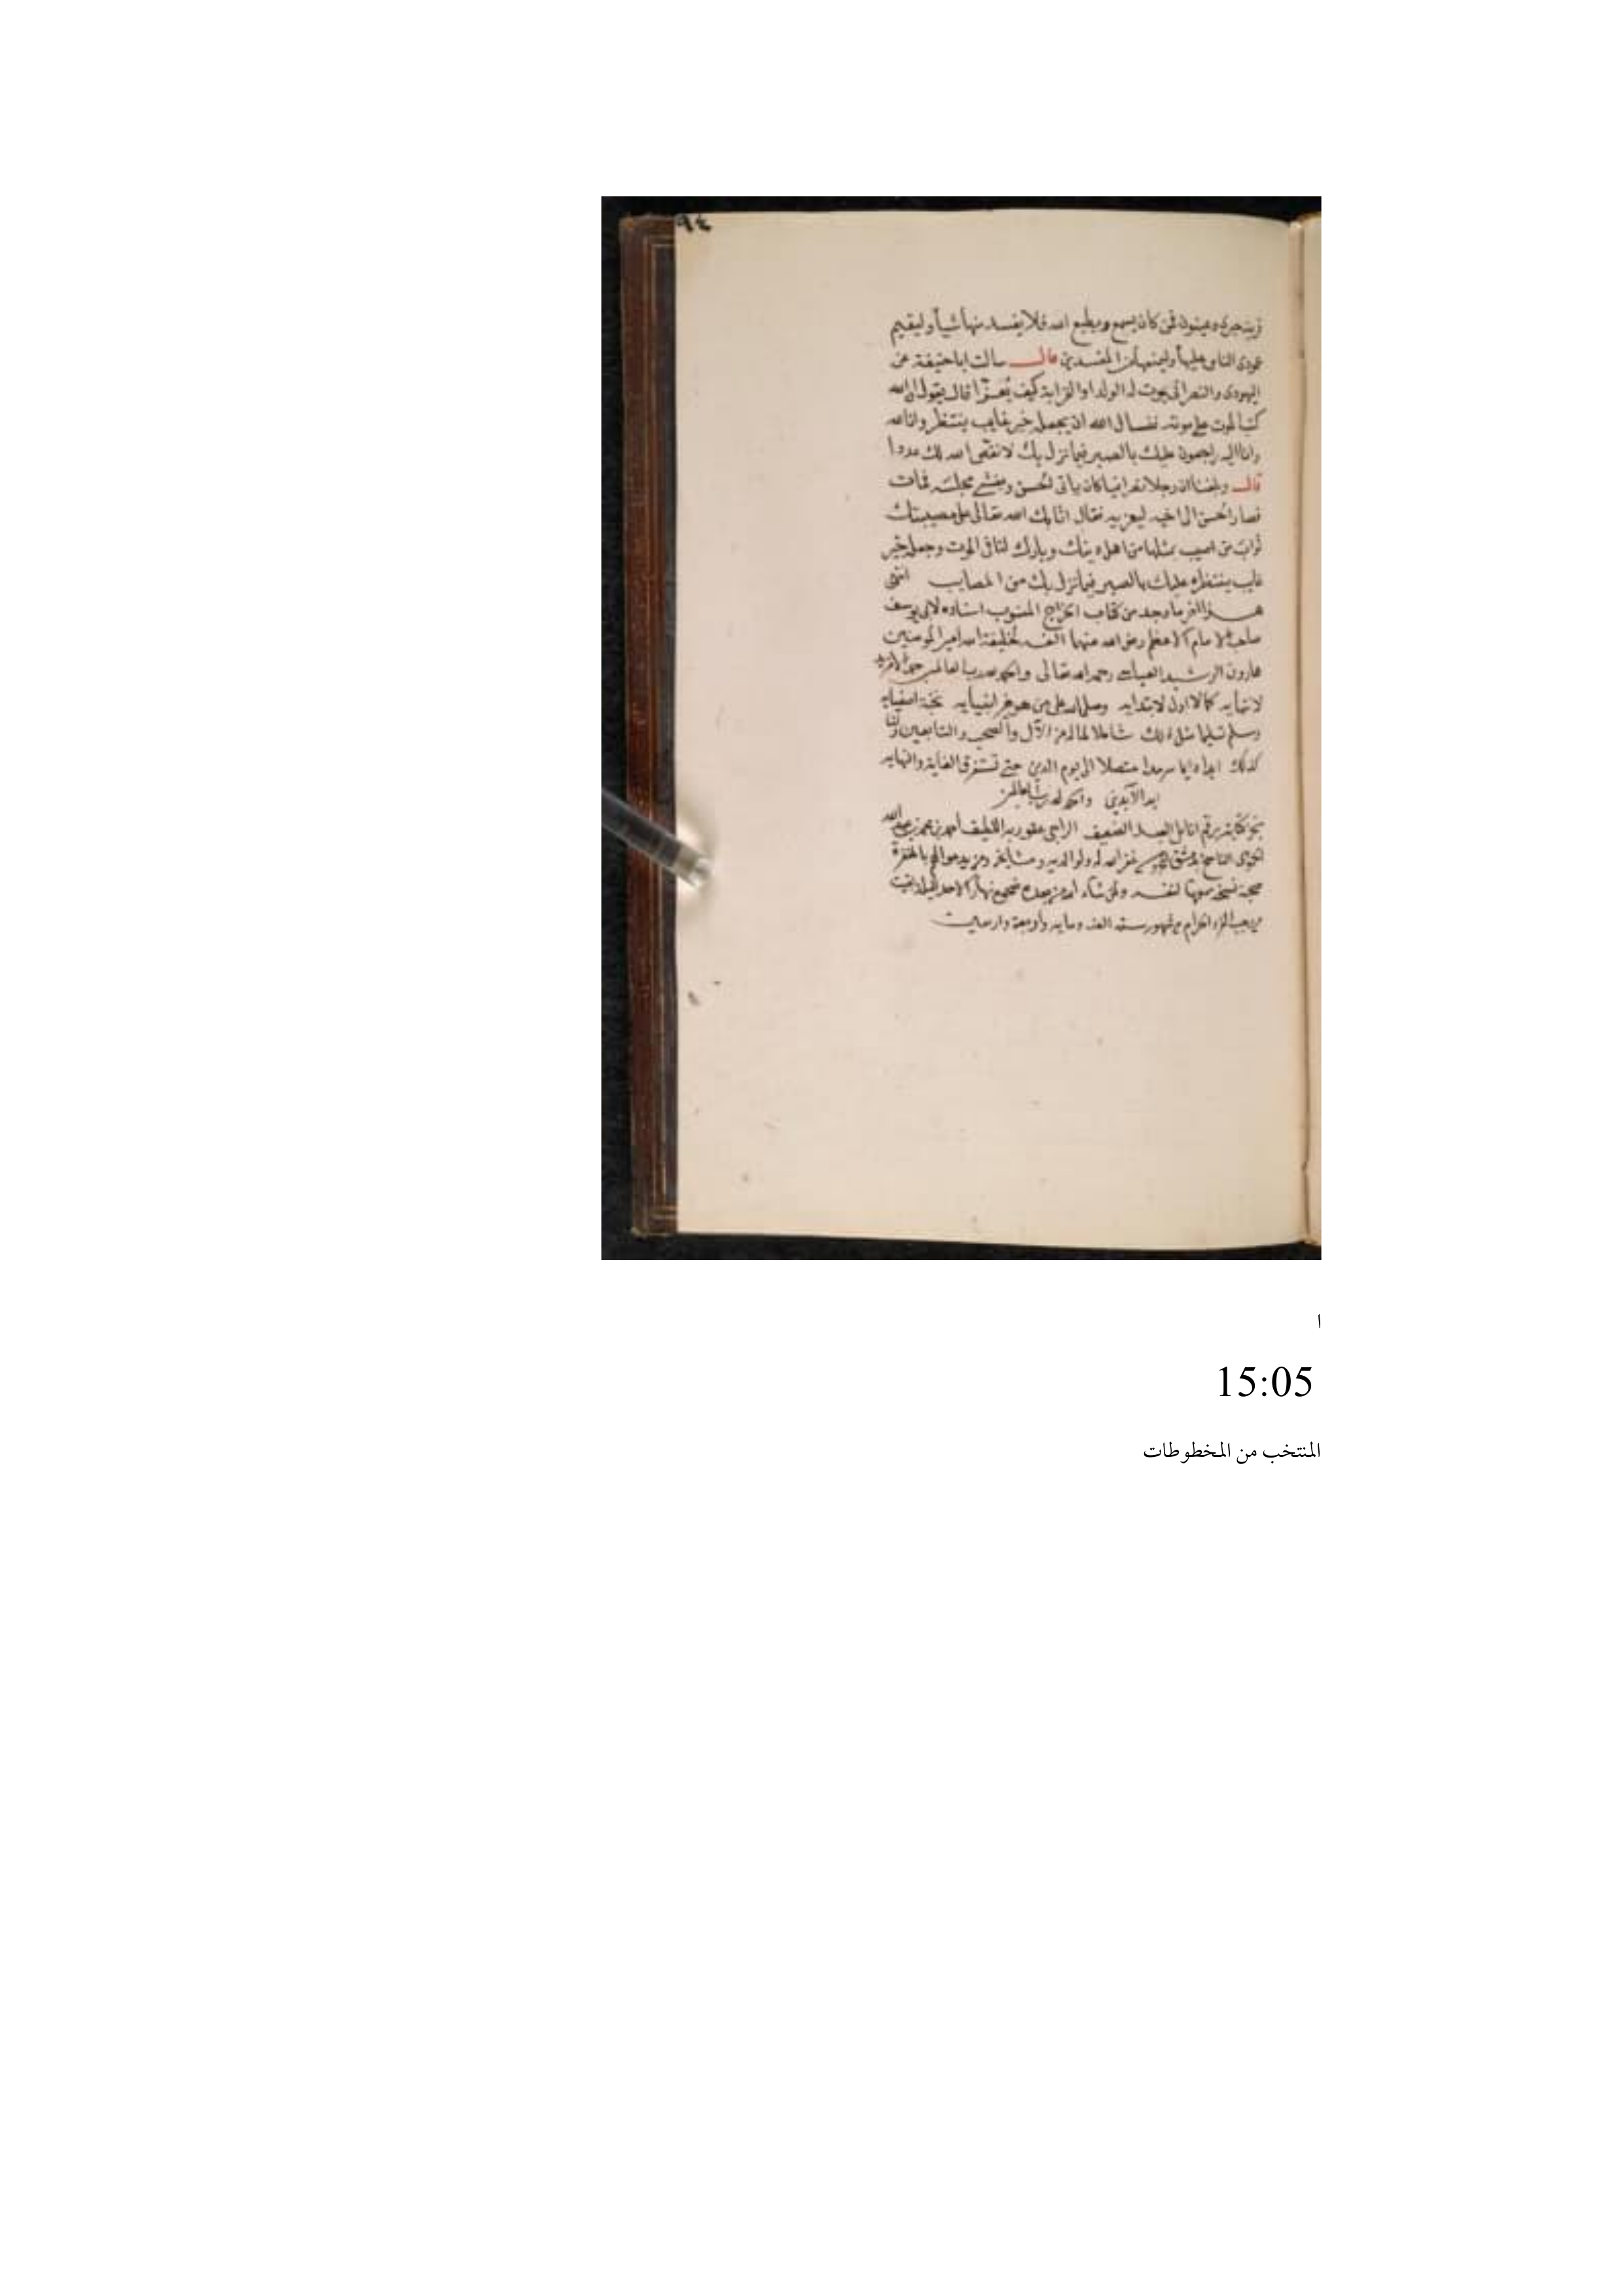 ٩٤
فمن كان يسمع ويطيع الله فلا يفسد منها شيأ وليقيم
عمودى الناس عليها وليمنعها من المفسدين قال سالت ابا حنيفة عن
اليهودى والنصرانى يموت له الولد او القرابة كيف يعزا قال يقول ان الله
كتب الموت على نسال الله ان يجعله خير غايب ينتظر وانا لله
وانا اليه راجعون عليك بالصبر فيما نزل بك لا نقص الله لك عددا
قال وبلغنا ان رجلا نصرانيا كان ياتى الحسن ويغشى مجلسه فمات
فصار الحسن الى اخيه ليعزيه فقال اثابك الله تعالى على مصيبتك
ثواب من اصيب بمثلها من اهل دينك وبارك لنا فى الموت وجعله خير
غايب ينتظره عليك بالصبر فيما نزل بك من المصايب انتهى
هذا اخر ما وجد من كتاب الخراج المنسوب اسناده لابى يوسف
صاحب الامام الاعظم رضى الله عنهما الفه لخليفة الله امير المومنين
هارون الرشيد العباسى رحمه الله تعالى والحمد لله رب العالمين
لانتهايه كما لا اول لابتدايه وصلى الله على من هو خير انبيايه نخبة اصفيايه
وسلم تسليما مثل ذلك شاملا لما له من الآل والصحب والتابعين ولنا
كذلك ابدا دايما سرمدا متصلا الى يوم الدين حتى تستغرق الغاية والنهايه
ابد الآبدين والحمد لله رب العالمين
العبد الضعيف الراجى عفو ربه اللطيف احمد بن محمد بن عبد الله
الناسخ بدمشق غفر الله له ولوالديه ومشايخه
لنفسه ولمن شاء الله من بعده نهار الاحد
من رجب الفرد الحرام من شهور سنة الف ومايه واربعة واربعين
ا
15:05
المنتخب من المخطوطات